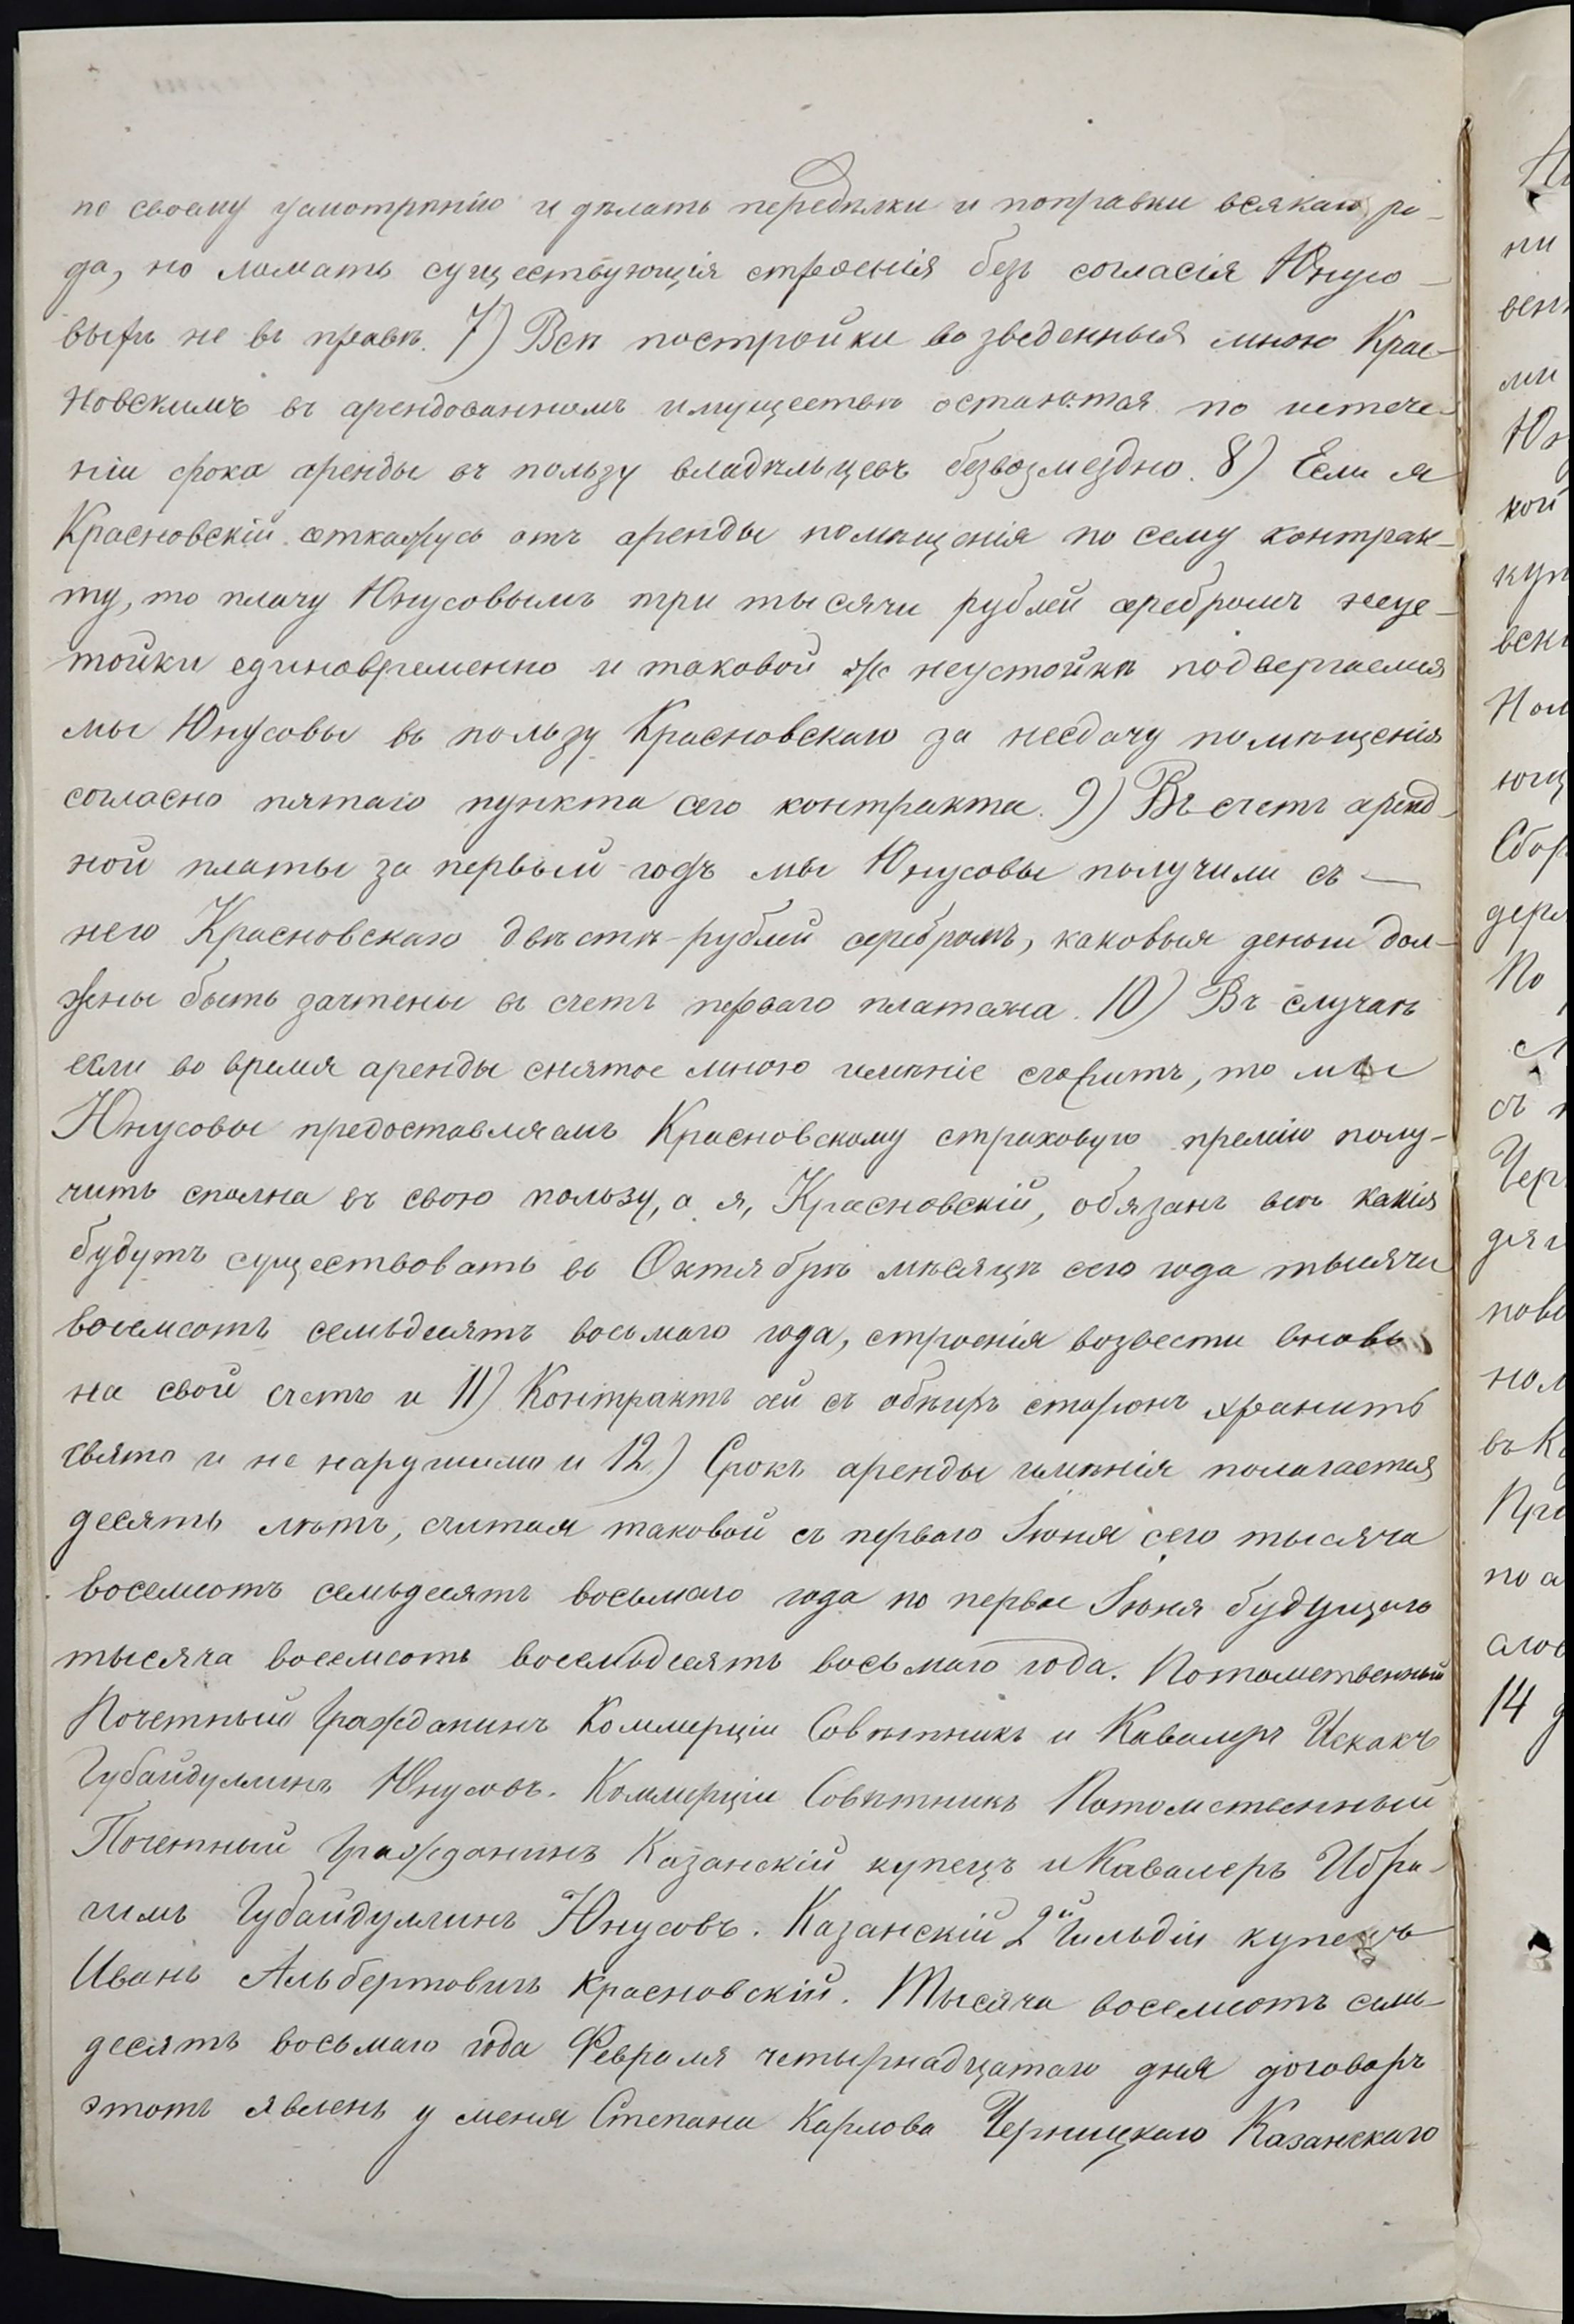 по своему усмотрѣнію и дѣлать передѣлки и поправки всякаго ро-
да, но ломать существующія строенія безъ согласія Юнусо-
выхъ не въ правѣ. 7) Всѣ постройки возведенныя мною Крас-
новскимъ въ арендованномъ имуществѣ остаются по истече-
ніи срока аренды въ пользу владѣльцевъ безвозмездно. 8) Если я
Красновскій откажусь отъ аренды помѣщенія по сему контрак-
ту, то плачу Юнусовымъ три тысячи рублей серебромъ неус-
тойки единовременно и таковой же неустойкѣ подвергаемся
мы Юнусовы въ пользу Красновскаго за несдачу помѣщенія
согласно пятаго пункта сего контракта. 9) Въ счетъ аренд-
ной платы за первый годъ мы Юнусовы получили съ —
него Красновскаго двѣстѣ рублей серебромъ, каковыя деньги дол-
жны быть зачтены въ счетъ перваго платежа. 10) Въ случаѣ
если во время аренды снятое мною имѣніе сгоритъ, то мы
Юнусовы предоставляемъ Красновскому страховую премію полу-
чить сполна въ свою пользу, а я, Красновскій, обязанъ всѣ какія
будутъ существовать въ Октябрѣ мѣсяцѣ сего года тысячи
восемсотъ семьдесятъ восьмаго года, строенія возвести вновь
на свой счетъ и 11) Контрактъ сей съ обѣихъ сторонъ хранить
свято и не нарушимо и 12) Срокъ аренды имѣнія полагается
десять лѣтъ, считая таковой съ перваго Іюня сего тысяча
восемсотъ семьдесятъ восьмаго года по первое Іюня будущаго
тысяча восемсотъ восемьдесятъ восьмаго года. Потомственный
Почетный Гражданинъ Коммерціи Совѣтникъ и Кавалеръ Исхакъ
Губайдуллинъ Юнусовъ. Коммерціи Совѣтникъ Потомственный
Почетный Гражданинъ Казанскій купецъ и Кавалеръ Ибра-
гимъ Губайдуллинъ Юнусовъ. Казанскій 2й Гильдіи купецъ
Иванъ Альбертовичъ Красновскій. Тысяча восемсотъ семь-
десятъ восьмаго года Февраля четырнадцатаго дня договоръ
этотъ явленъ у меня Степана Карлова Черницкаго Казанскаго